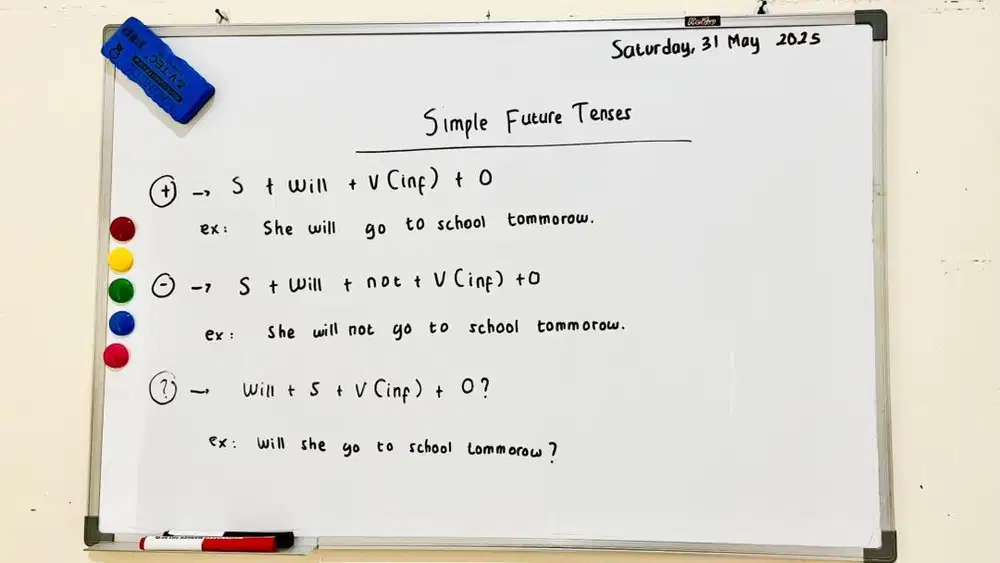 Saturday, 31 May 2025
Simple Future Tenses
(+) → S + Will + V (inf) + O
ex: She will go to school tommorow.
(-) → S + Will + not + V (inf) + O
ex: She will not go to school tommorow.
(?) → Will + S + V (inf) + O?
ex: Will she go to school tommorow?